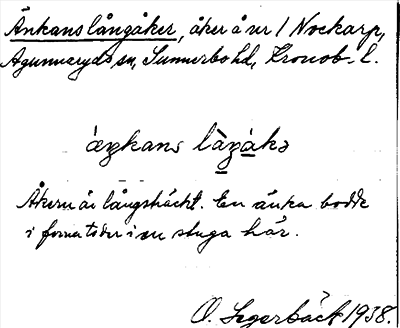 Änkans långåker, åker å nr 1 Nockarp,
Agunnaryds sn, Sunnerbo hd, Kronob. l.
áeŋkans làŋákə
Åkern är långsträckt. En änka bodde
i forna tider i en stuga här.
O. Segerbäck 1938.